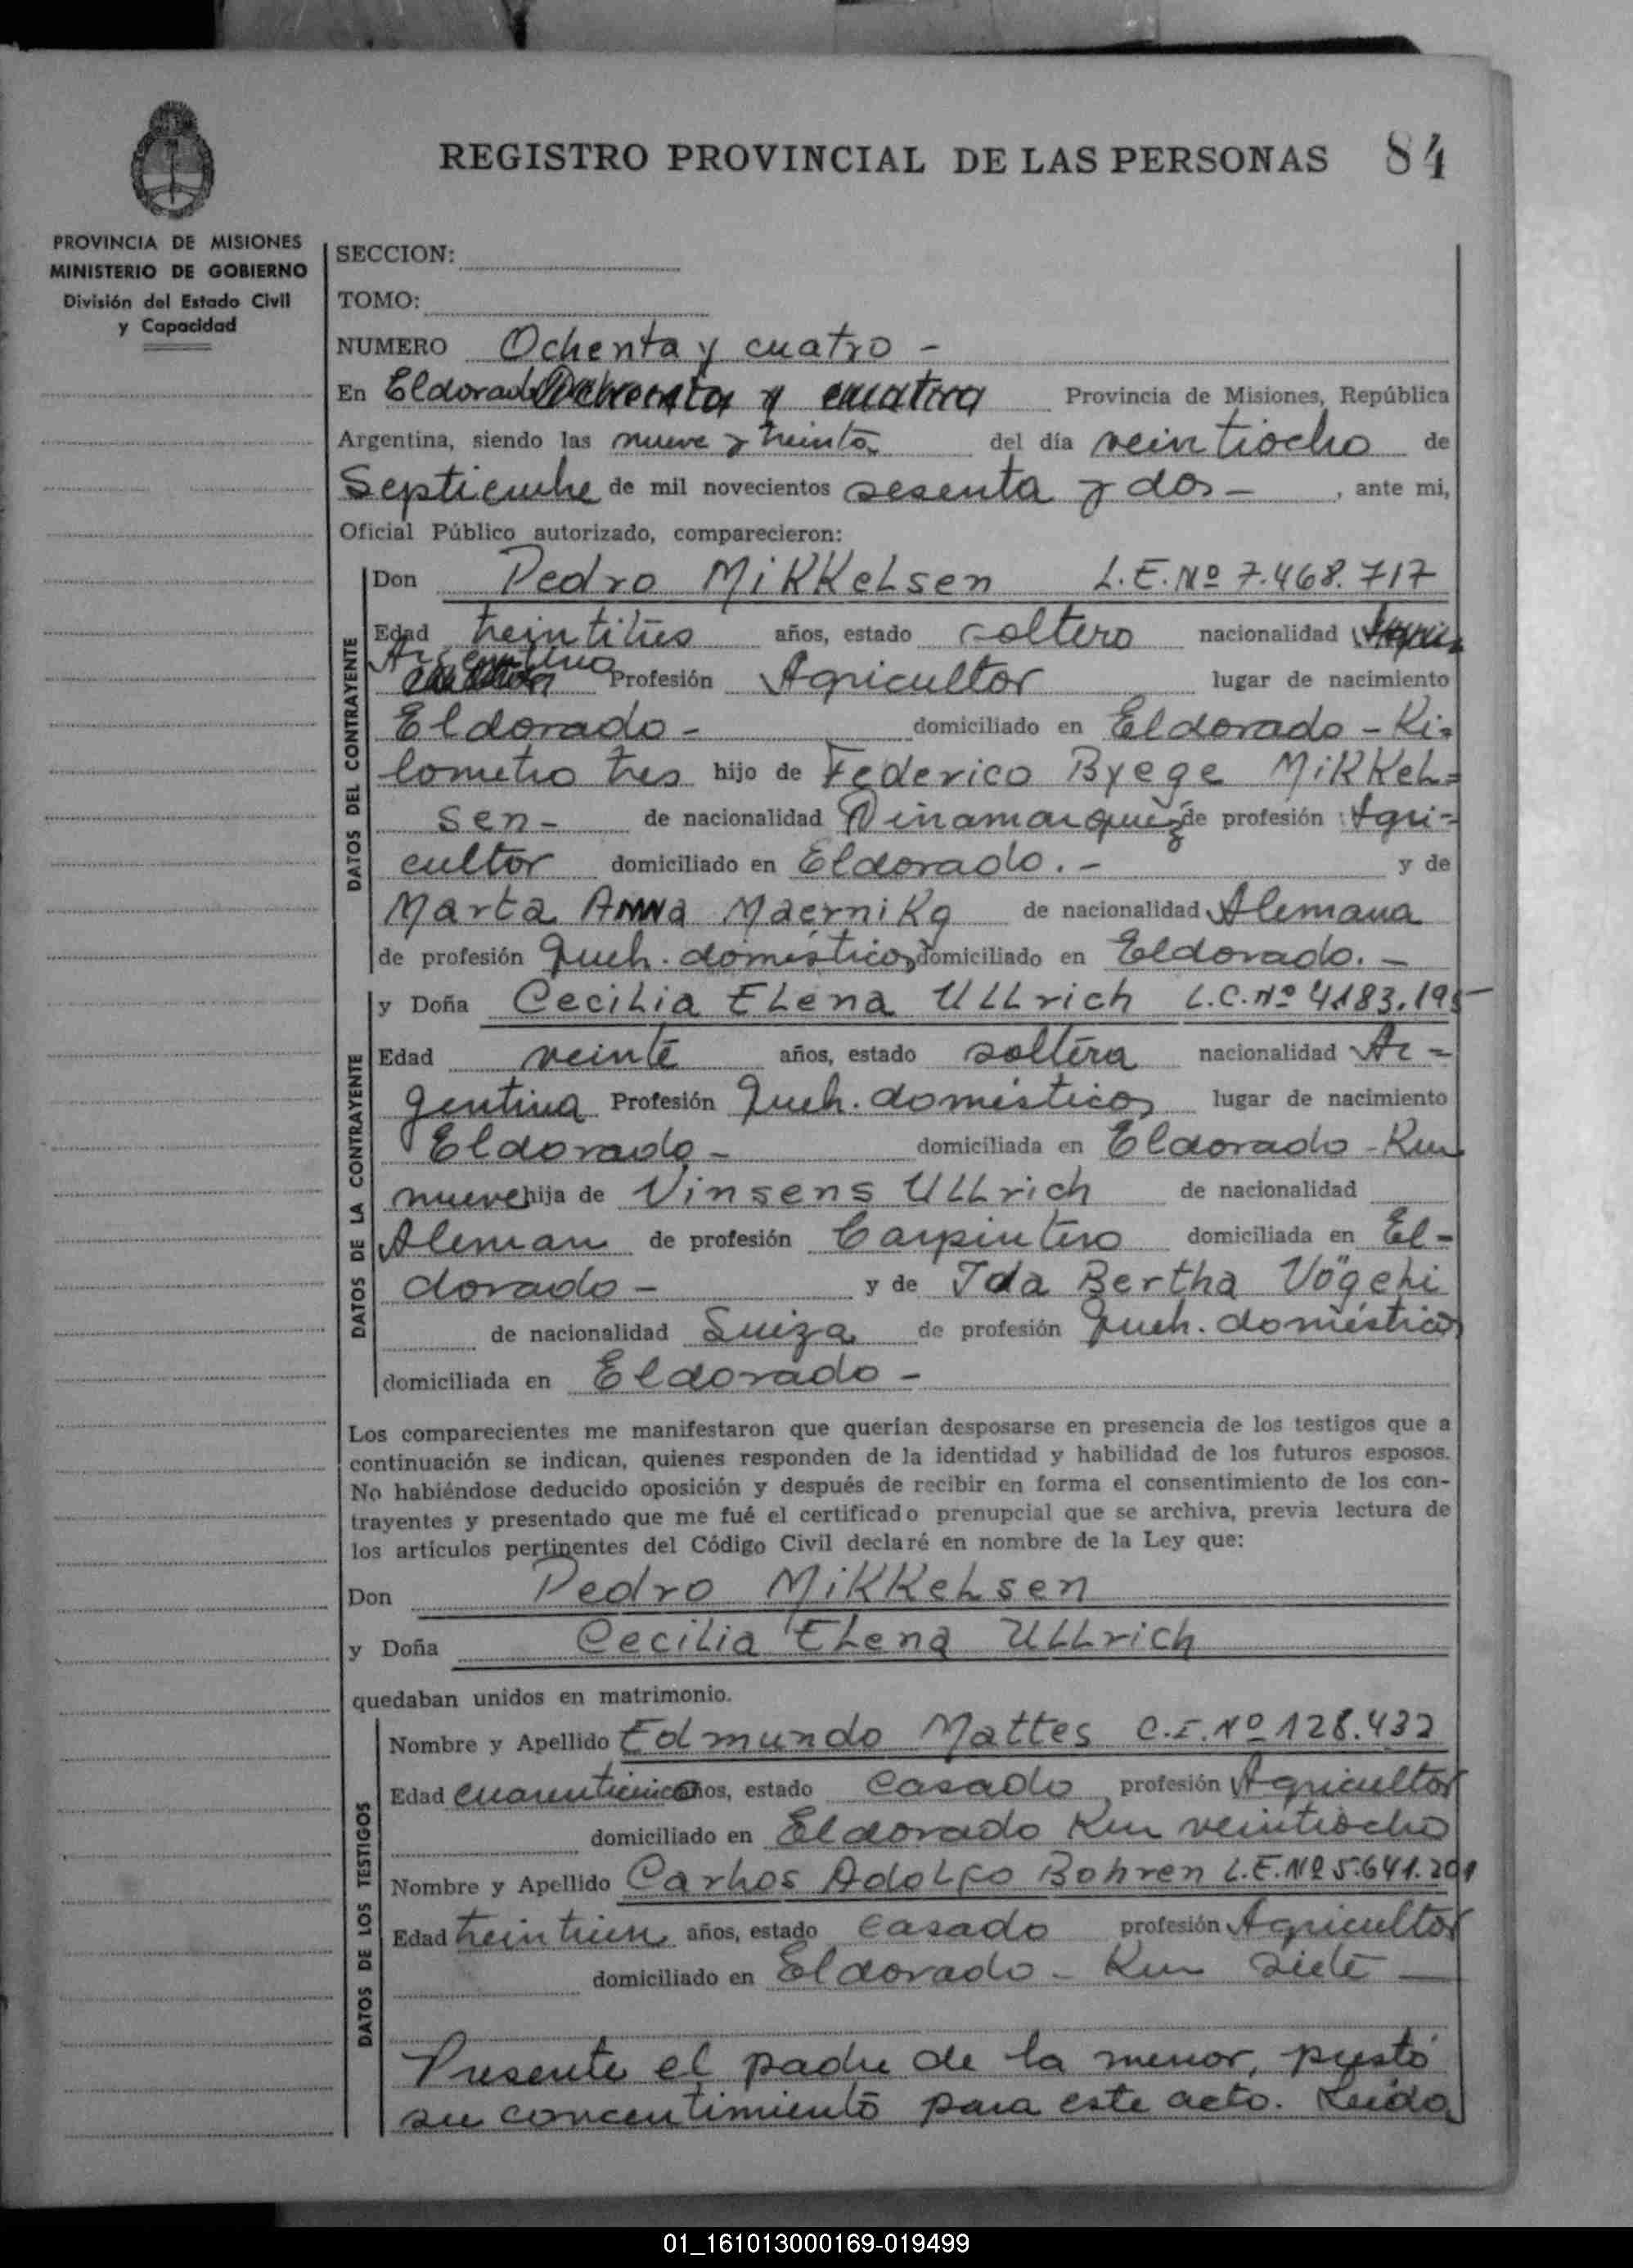 REGISTRO PROVINCIAL DE LAS PERSONAS 84
PROVINCIA DE MISIONES
MINISTERIO DE GOBIERNO
División del Estado Civil
y Capacidad
SECCION:
TOMO:
NUMERO Ochenta y cuatro -
En Eldorado Provincia de Misiones, República
Argentina, siendo las nueve y treinta del día veintiocho de
Septiembre de mil novecientos sesenta y dos - , ante mi,
Oficial Público autorizado, comparecieron:
DATOS DEL CONTRAYENTE
Don Pedro Mikkelsen L.E. Nº 7.468.717
Edad treintitres años, estado soltero nacionalidad
Argentina Profesión Agricultor lugar de nacimiento
Eldorado - domiciliado en Eldorado - Ki=
lometro tres hijo de Federico Byege Mikkel=
sen - de nacionalidad Dinamarquez de profesión Agri=
cultor domiciliado en Eldorado. - y de
Marta Anna Maernikg de nacionalidad Alemana
de profesión Queh. domésticos domiciliado en Eldorado. -
DATOS DE LA CONTRAYENTE
y Doña Cecilia Elena Ullrich L.C. Nº 4183.195
Edad veinte años, estado soltera nacionalidad Ar=
gentina Profesión Queh. domésticos lugar de nacimiento
Eldorado - domiciliada en Eldorado - Km
nueve hija de Vinsens Ullrich de nacionalidad
Aleman de profesión Carpintero domiciliada en El=
dorado - y de Ida Bertha Vögeli
de nacionalidad Suiza de profesión Queh. domésticos
domiciliada en Eldorado -
Los comparecientes me manifestaron que querían desposarse en presencia de los testigos que a
continuación se indican, quienes responden de la identidad y habilidad de los futuros esposos.
No habiéndose deducido oposición y después de recibir en forma el consentimiento de los con-
trayentes y presentado que me fué el certificado prenupcial que se archiva, previa lectura de
los artículos pertinentes del Código Civil declaré en nombre de la Ley que:
Don Pedro Mikkelsen
y Doña Cecilia Elena Ullrich
quedaban unidos en matrimonio.
DATOS DE LOS TESTIGOS
Nombre y Apellido Edmundo Mattes C.I. Nº 128.432
Edad años, estado casado profesión Agricultor
domiciliado en Eldorado Km veintiocho
Nombre y Apellido Carlos Adolfo Bohren L.E. Nº 5.641.201
Edad años, estado casado profesión Agricultor
domiciliado en Eldorado - Km siete -
Presente el padre de la menor, prestó
su concentimiento para este acto. Leida
01_161013000169-019499